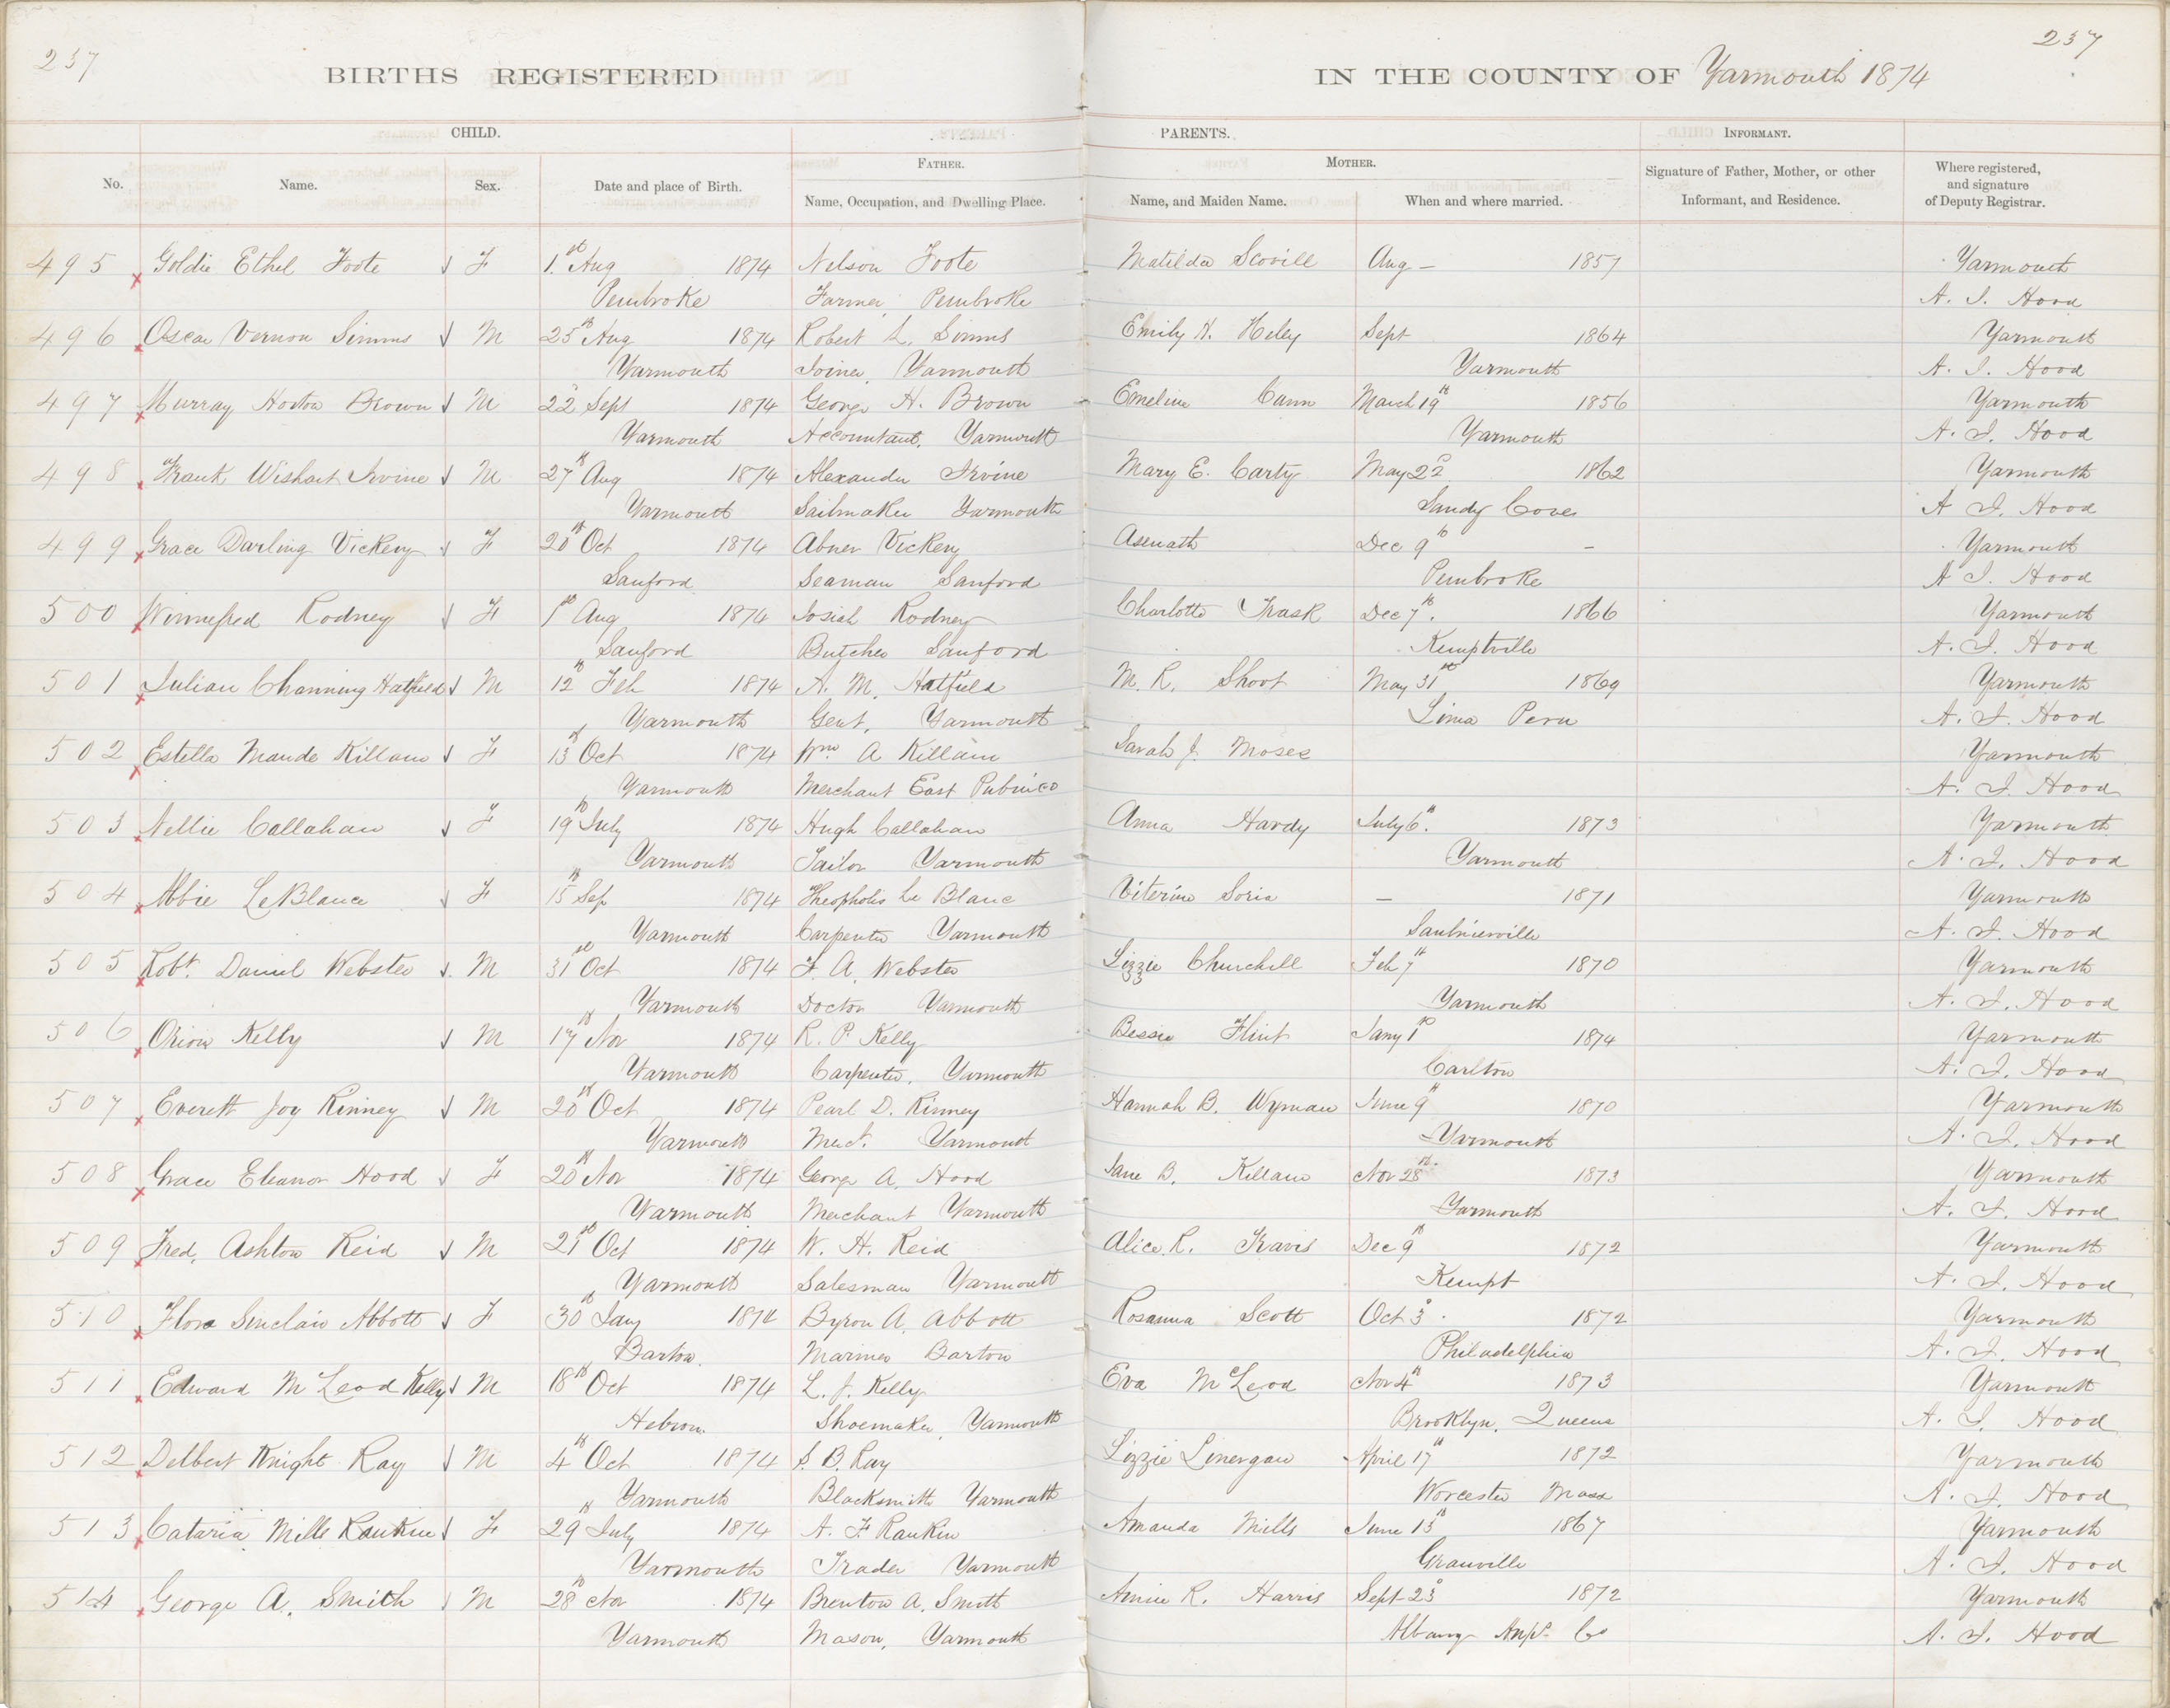 237 237
BIRTHS REGISTERED IN THE COUNTY OF Yarmouth 1874
CHILD. PARENTS. INFORMANT.
FATHER. MOTHER.
No. Name. Sex. Date and place of Birth. Name, Occupation, and Dwelling Place. Name, and Maiden Name. When and where married. Signature of Father, Mother, or other Informant, and Residence. Where registered, and signature of Deputy Registrar.
495 Goldie Ethel Foote F 1st Aug 1874 Nelson Foote Matilda Scovill Aug – 1857 Yarmouth
Pembroke Farmer Pembroke A. J. Hood
496 Oscar Vernon Simms M 25th Aug 1874 Robert L. Simms Emily H. Heley Sept 1864 Yarmouth
Yarmouth Joiner, Yarmouth Yarmouth A. J. Hood
497 Murray Horton Brown M 22d Sept 1874 George H. Brown Emeline Cann March 19th 1856 Yarmouth
Yarmouth Accountant, Yarmouth Yarmouth A. J. Hood
498 Frank Wishart Irvine M 27th Aug 1874 Alexander Irvine Mary E. Carty May 22d 1862 Yarmouth
Yarmouth Sailmaker Yarmouth Sandy Cove A J. Hood
499 Grace Darling Vickery F 20th Oct 1874 Abner Vickery Asenath Dec 9th – Yarmouth
Sanford Seaman Sanford Pembroke A J. Hood
500 Winnefred Rodney F 1st Aug 1874 Josiah Rodney Charlotte Trask Dec 7th. 1866 Yarmouth
Sanford Butcher Sanford Kemptville A. J. Hood
501 Julian Channing Hatfield M 12th Feb 1874 A. M. Hatfield M. R. Shoot May 31st 1869 Yarmouth
Yarmouth Gent, Yarmouth Lima Peru A. J. Hood
502 Estella Maude Killam F 13th Oct 1874 Wm A Killam Sarah J. Moses Yarmouth
Yarmouth Merchant East Pubnico A. J. Hood
503 Nellie Callahan F 19th July 1874 Hugh Callahan Anna Hardy July 6th. 1873 Yarmouth
Yarmouth Tailor Yarmouth Yarmouth A. J. Hood
504 Abbie LeBlance F 15th Sep 1874 Theopholis Le Blanc Viterine Soria – 1871 Yarmouth
Yarmouth Carpenter Yarmouth Saulnierville A. J. Hood
505 Robt. Daniel Webster M 31st Oct 1874 F. A. Webster Lizzie Churchill Feb 7th 1870 Yarmouth
Yarmouth Doctor Yarmouth Yarmouth A. J. Hood
506 Orion Kelly M 17th Nov 1874 R. P. Kelly Bessie Flint Jany 1st 1874 Yarmouth
Yarmouth Carpenter, Yarmouth Carlton A. J. Hood
507 Everett Joy Kinney M 20th Oct 1874 Pearl D. Kinney Hannah B. Wyman June 9th 1870 Yarmouth
Yarmouth Mect. Yarmouth Yarmouth A. J. Hood
508 Grace Eleanor Hood F 20th Nov 1874 George A. Hood Jane B. Killam Nov 28th. 1873 Yarmouth
Yarmouth Merchant Yarmouth Yarmouth A. J. Hood
509 Fred. Ashton Reid M 21st Oct 1874 W. H. Reid Alice R. Travis Dec 9th 1872 Yarmouth
Yarmouth Salesman Yarmouth Kempt A. J. Hood
510 Flora Sinclair Abbott F 30th Jany 1874 Byron A. Abbott Rosanna Scott Oct 3d. 1872 Yarmouth
Barton. Mariner Barton Philadelphia A. J. Hood
511 Edward McLeod Kelly M 18th Oct 1874 L. J. Kelly Eva McLeod Nov 4th 1873 Yarmouth
Hebron. Shoemaker, Yarmouth Brooklyn, Queens A. J. Hood
512 Delbert Knight Ray M 4th Oct 1874 S. B. Ray Lizzie Linergan April 17th 1872 Yarmouth
Yarmouth Blacksmith Yarmouth Worcester Mass A. J. Hood
513 Cataria Mills Rankin F 29th July 1874 A. F. Rankin Amanda Mills June 13th 1867 Yarmouth
Yarmouth Trader Yarmouth Granville A. J. Hood
514 George A. Smith M 28th Nov 1874 Brenton A. Smith Annie R. Harris Sept 23d 1872 Yarmouth
Yarmouth Mason, Yarmouth Albany Anps. Co A. J. Hood